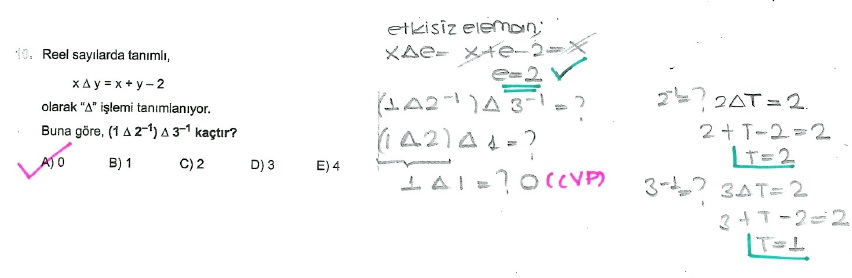 10. Reel sayılarda tanımlı,
x Δ y = x + y – 2
olarak "Δ" işlemi tanımlanıyor.
Buna göre, (1 Δ 2⁻¹) Δ 3⁻¹ kaçtır?
A) 0 B) 1 C) 2 D) 3 E) 4
etkisiz eleman;
xΔe= x+e-2=x
e=2
(1Δ2⁻¹)Δ 3⁻¹=?
(1Δ2)Δ 1=?
1 Δ 1=? 0(CVP)
2⁻¹=? 2ΔT=2
2+T-2=2
T=2
3⁻¹=? 3ΔT=2
3+T-2=2
T=1